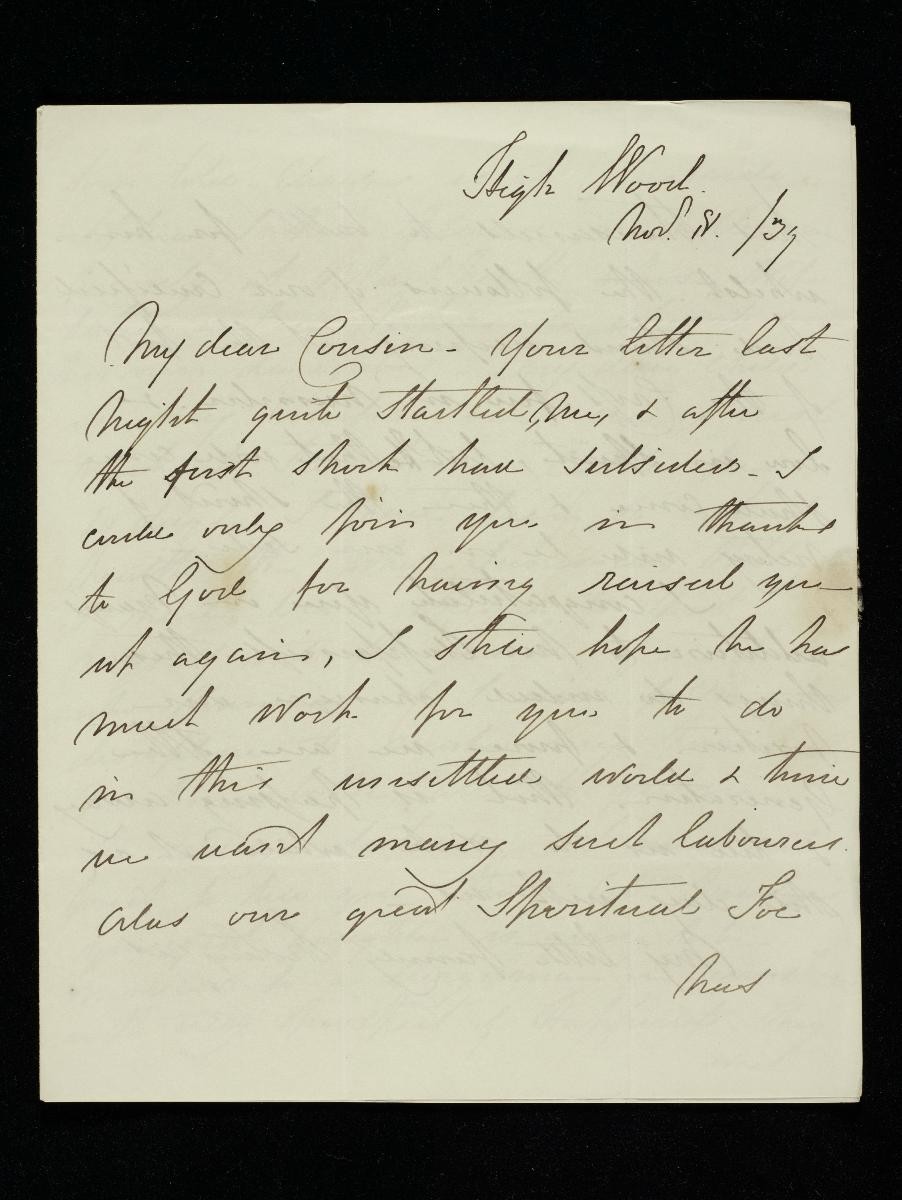 High Wood.
Nov. 18. /39
My dear Cousin - Your letter last
Night quite startled me, & after
the first shock had subsided - I
could only join you in thanks
to God for having raised you
up again, I still hope he has
much work for you to do
in this unsettled world & time
we want many such labourers.
Alas our great Spiritual Foe
has